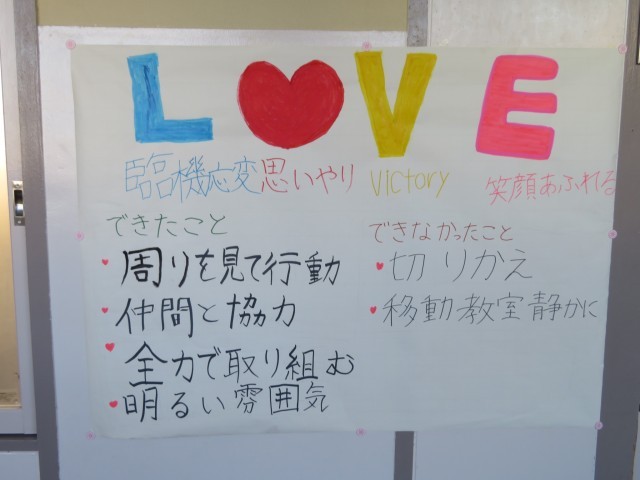 L♥VE
臨機応変 思いやり victory 笑顔あふれる
できたこと
♥周りを見て行動
♥仲間と協力
♥全力で取り組む
♥明るい雰囲気
できなかったこと
♥切りかえ
♥移動教室静かに